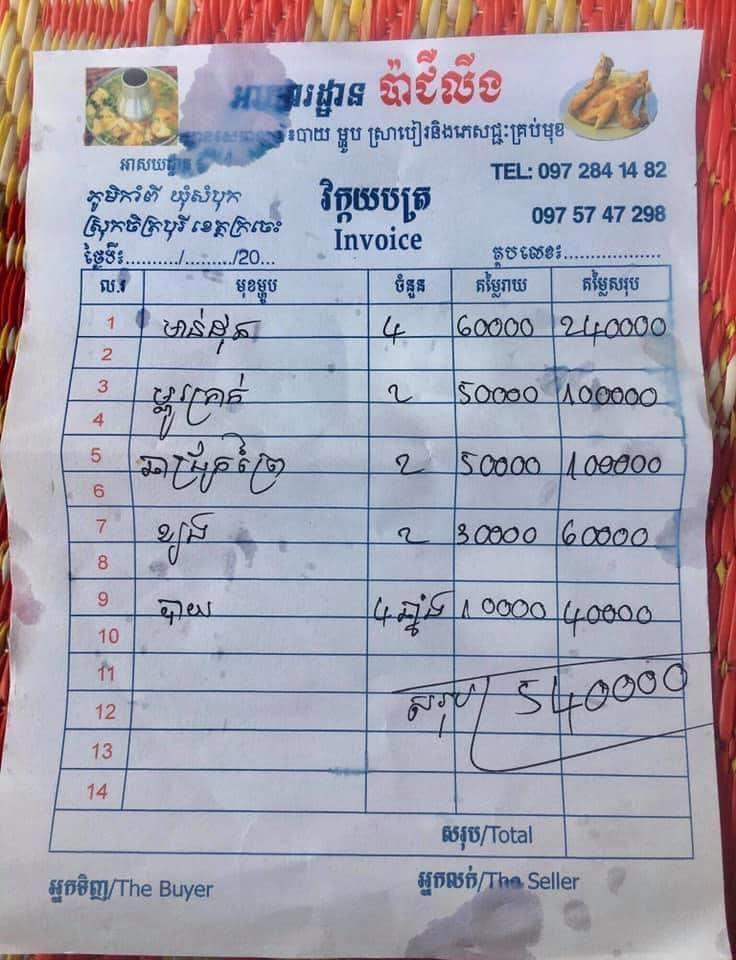 អាហារដ្ឋាន ប៉ាជីលីង
បាយ ម្ហូប ស្រាបៀរនិងភេសជ្ជៈគ្រប់មុខ
អាសយដ្ឋាន
TEL: 097 284 14 82
ភូមិកាំពី ឃុំសំបុក
វិក្កយបត្រ
097 57 47 298
ស្រុកចិត្របុរី ខេត្តក្រចេះ
Invoice
ថ្ងៃទី៖........./......../20... តុបលេខ៖..................
ល.រ មុខម្ហូប ចំនួន តម្លៃរាយ តម្លៃសរុប
1 មាន់ដុត 4 60000 240000
2
3 ម្ជូរគ្រាត់ 2 50000 100000
4
5 ឆាជ្រូកព្រៃ 2 50000 100000
6
7 ខ្យង 2 30000 60000
8
9 បាយ 4 ឆ្នាំង 10000 40000
10
11
12 សរុប 540000
13
14
សរុប/Total
អ្នកទិញ/The Buyer អ្នកលក់/The Seller